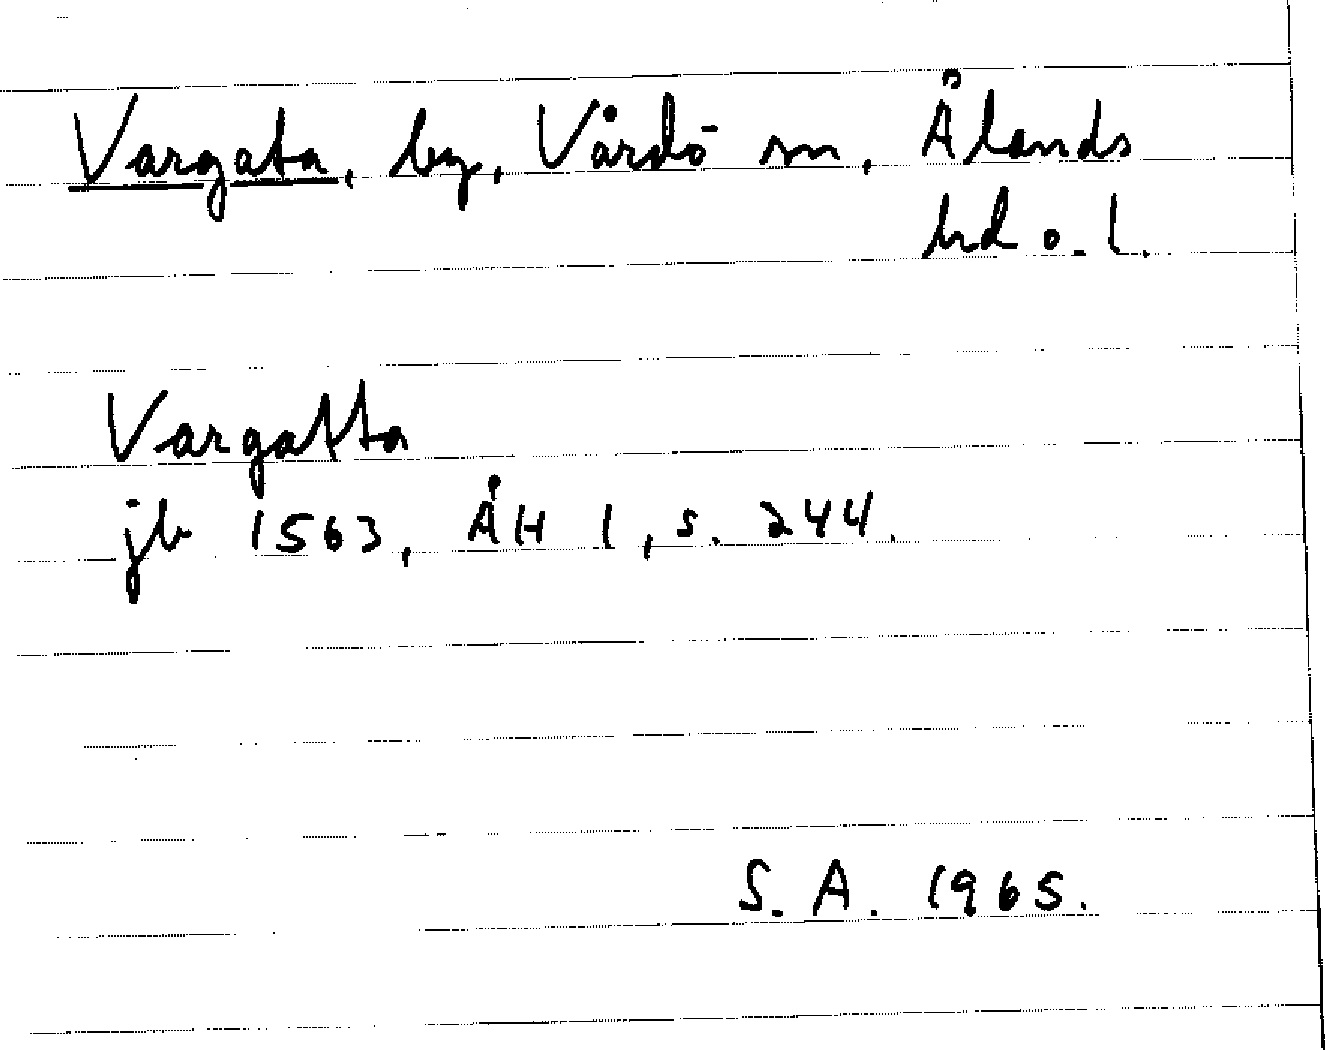 Vargata, by, Vårdö sn, Ålands
hd o. l.
Vargatta
jb 1563, ÅH 1, s. 244.
S. A. 1965.